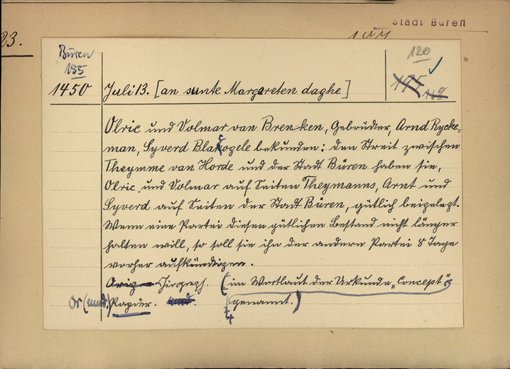 Stadt Büren
23.
Büren
185
120
1450
Juli 13. [an sunte Margareten daghe]
Olric und Volmar van Brenken, Gebrüder, Arnd Rycke-
man, Syverd Blakogele bekunden: den Streit zwischen
Theymme van Horde und der Stadt Büren haben sie,
Olric und Volmar auf Seiten Theymanns, Arnt und
Syverd auf Seiten der Stadt Büren, gütlich beigelegt.
Wenn eine Partei diesen gütlichen Bestand nicht länger
halten will, so soll sie ihn der andern Partei 8 Tage
vorher aufkündigen.
Orig. (im Wortlaut der Urkunde „Concept"
Or (und) Papier. und genannt.)